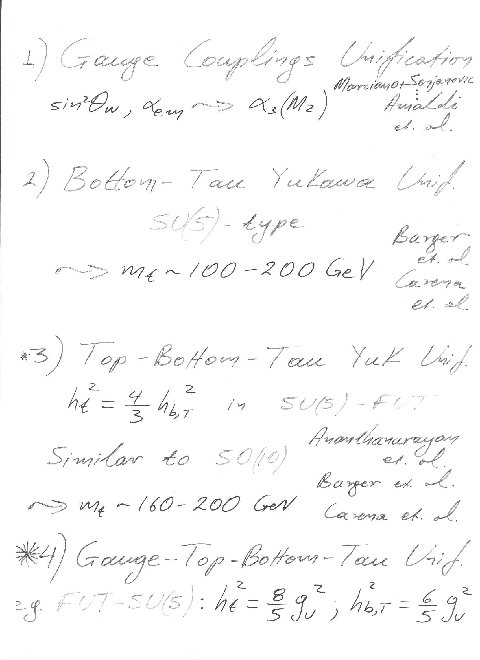 1) Gauge Couplings Unification
sin²θw, αem ~> α3(Mz)
Marciano + Senjanovic
⋮
Amaldi
et. al.
2) Bottom-Tau Yukawa Unif.
SU(5)-type
Barger
et. al
Carena
et. al.
~> mt ~ 100-200 GeV
*3) Top-Bottom-Tau Yuk Unif.
ht² = 4/3 hb,τ² in SU(5)-FUT
Similar to SO(10)
Ananthanarayan
et. al.
Barger et. al.
Carena et. al.
~> mt ~ 160-200 GeV
*4) Gauge-Top-Bottom-Tau Unif.
e.g. FUT-SU(5): ht² = 8/5 gU²; hb,τ² = 6/5 gU²